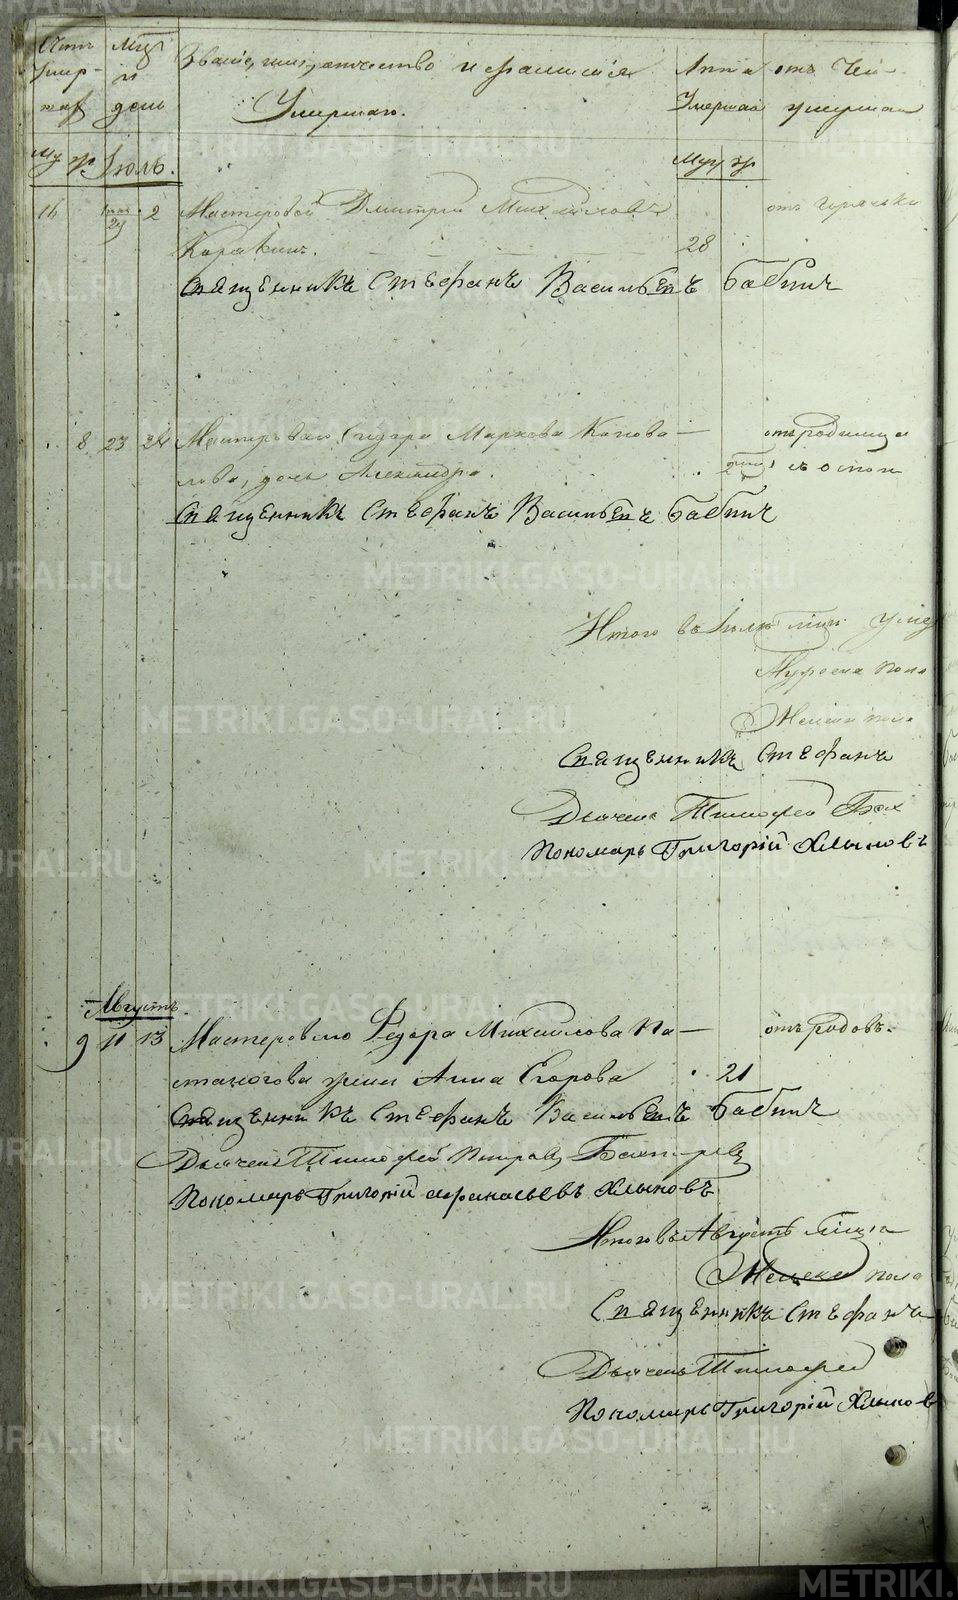 Счетъ Мцъ Званіе, имя, отчество и фамилія Лѣта отъ Чего
Умер- и Умершаго. Умершаго умершаго
шихъ день
Му ж. Іюль. Муж ж
16 2 Мастеровой Дмитрій Михайловъ отъ горячки
28
Священникъ Стефанъ Васильевъ Бабинъ
8 23 24 Мастероваго Сидора Маркова Конова- отъ родимца
лова, дочь Александра.
Священникъ Стефанъ Васильевъ Бабинъ
Итого въ Іюлѣ мцѣ Умер
Мужеска пола
Женска пола
Священникъ Стефанъ
Дьячекъ Тимофей Бах
Пономарь Григорій Хлыновъ
Августъ.
9 11 13 Мастероваго Федора Михайлова Па- отъ родовъ.
станогова жена Анна Егорова 21
Священникъ Стефанъ Васильевъ Бабинъ
Дьячекъ Тимофей Петровъ
Пономарь Григорій Афанасьевъ Хлыновъ
Итого въ Августѣ мцѣ
Женска пола
Священникъ Стефанъ
Дьячекъ Тимофей
Пономарь Григорій Хлынов
METRIKI.GASO-URAL.RU